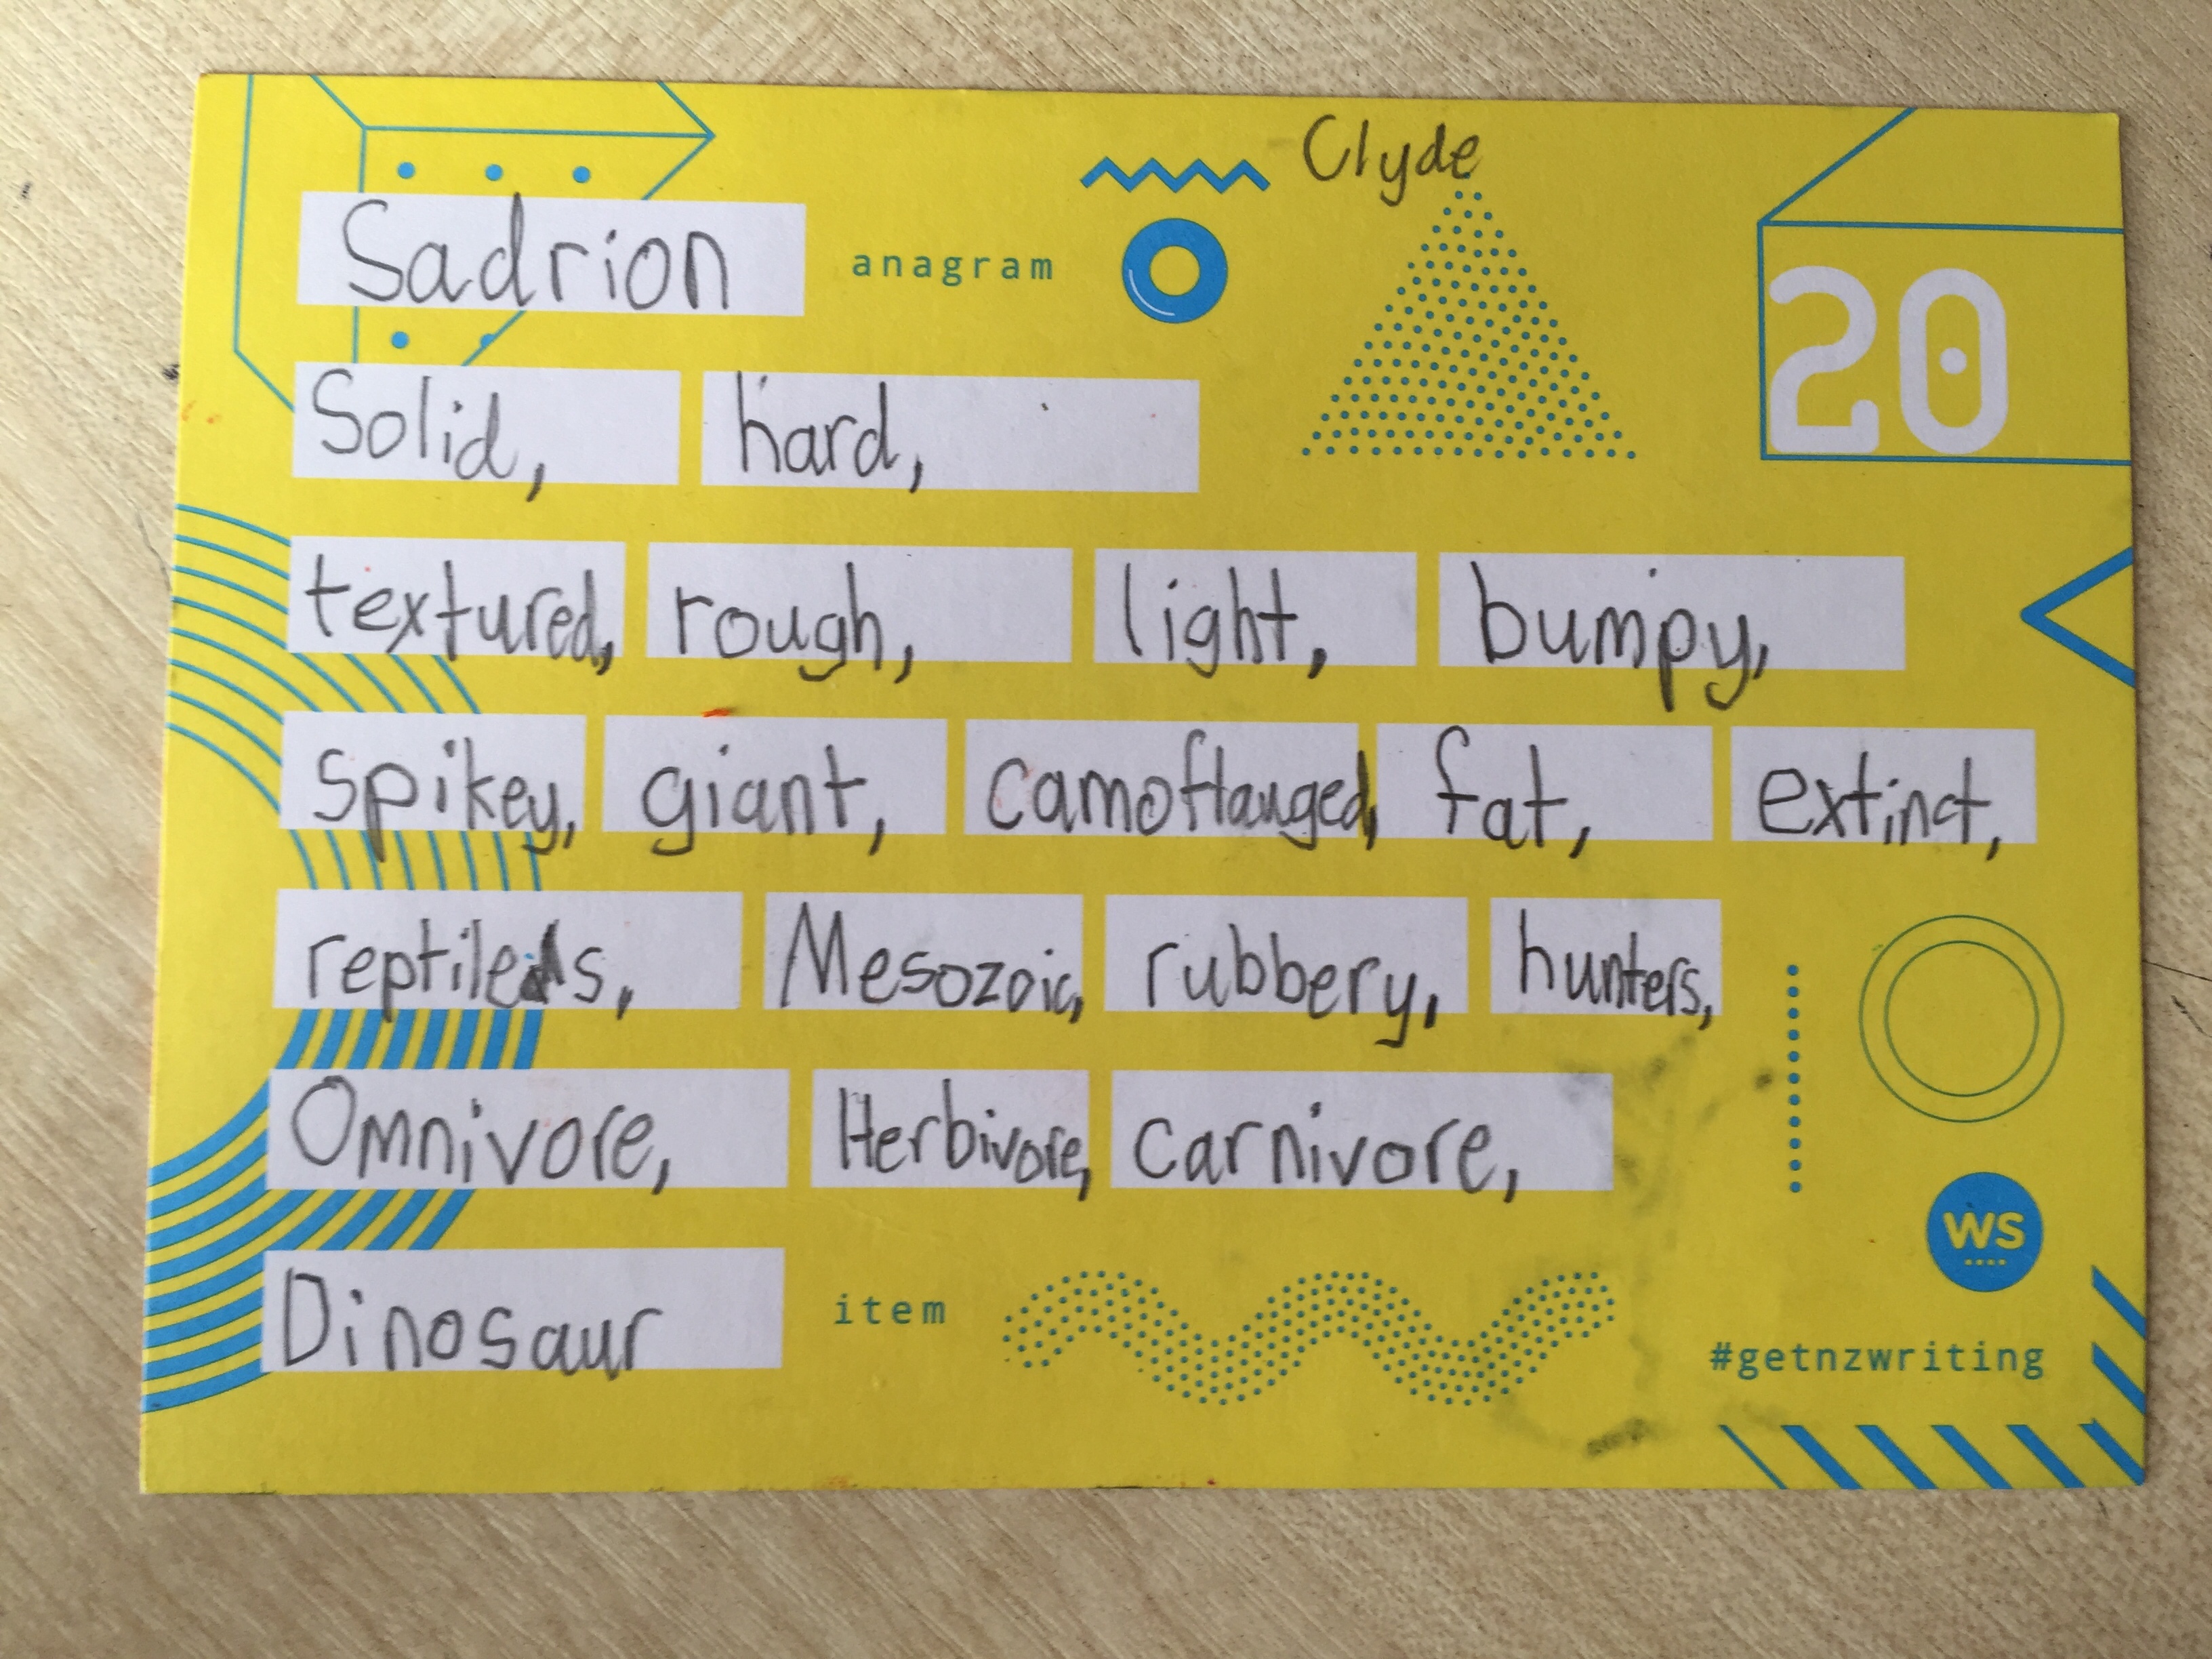 Clyde
Sadrion anagram
20
Solid, hard,
textured, rough, light, bumpy,
spikey, giant, camoflauged, fat, extinct,
Mesozoic, rubbery, hunters,
Omnivore, Herbivore, carnivore,
WS
Dinosaur item
#getnzwriting